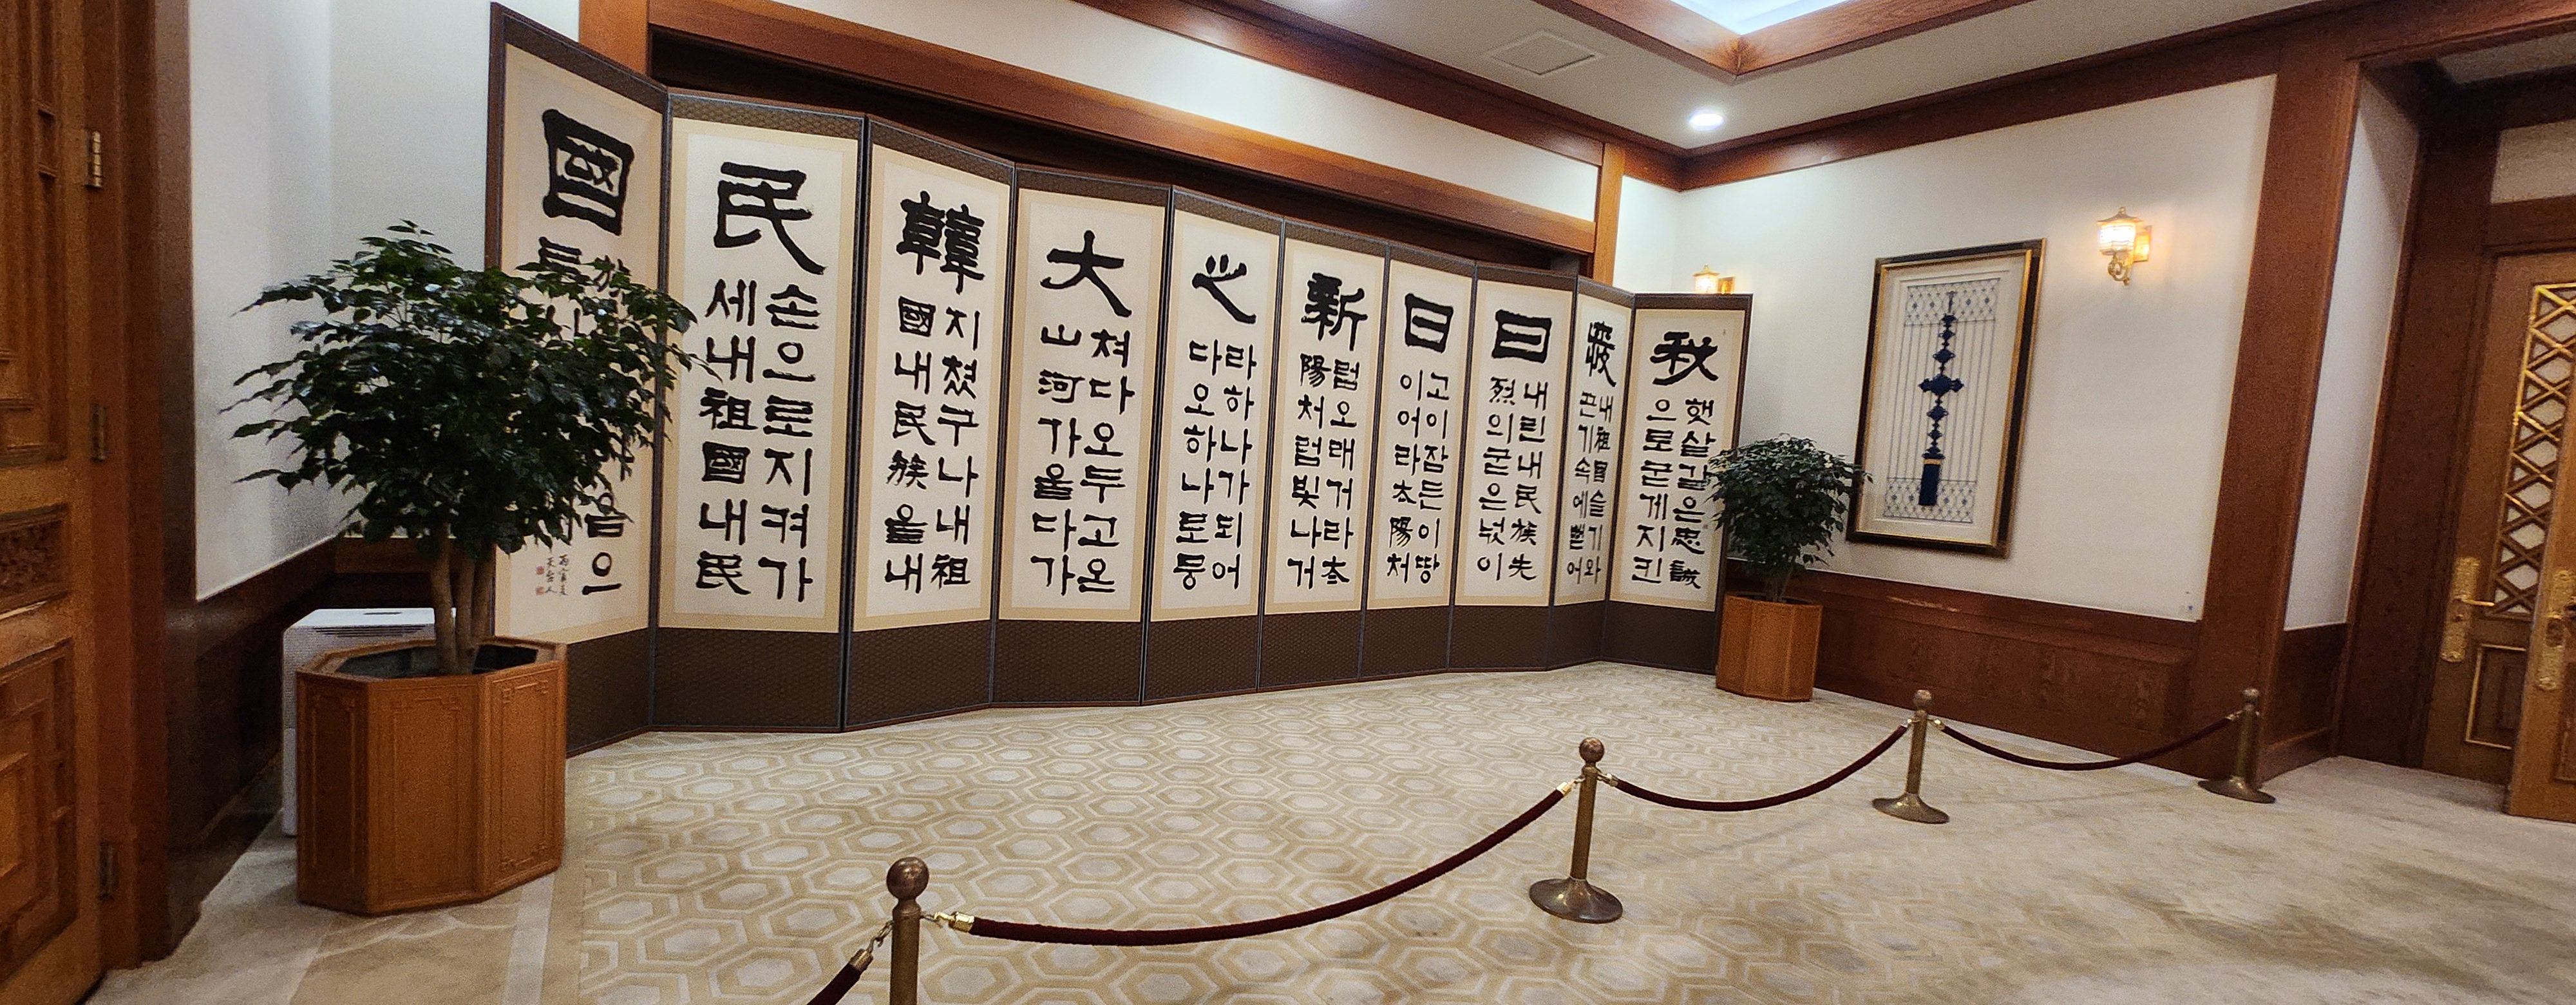 秋
햇살같은忠誠
으로굳게지킨
내祖國슬기와
끈기속에뻗어
曰
내린내民族先
烈의굳은넋이
日
고이잠든이땅
이어라太陽처
新
럼오래거라太
陽처럼빛나거
之
라하나가되어
다오하나로뭉
大
쳐다오두고온
山河가울다가
韓
지쳤구나내祖
國내民族을내
民
손으로지켜가
세내祖國내民
國
族 음으